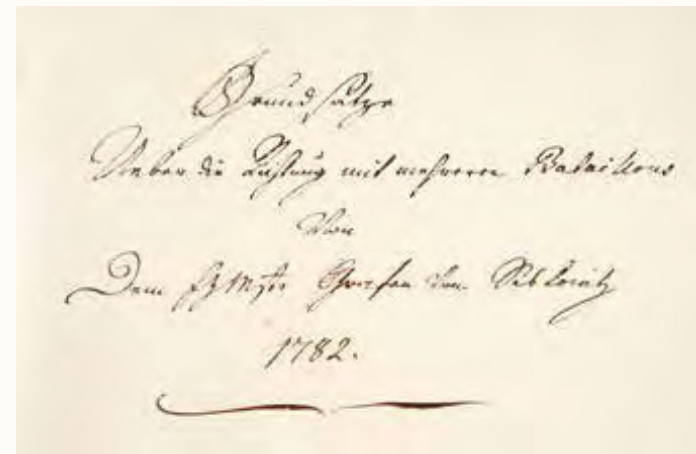 Grundsätze
Ueber die Richtung mit mehreren Bataillons
Von
Dem Grafen von
1782.